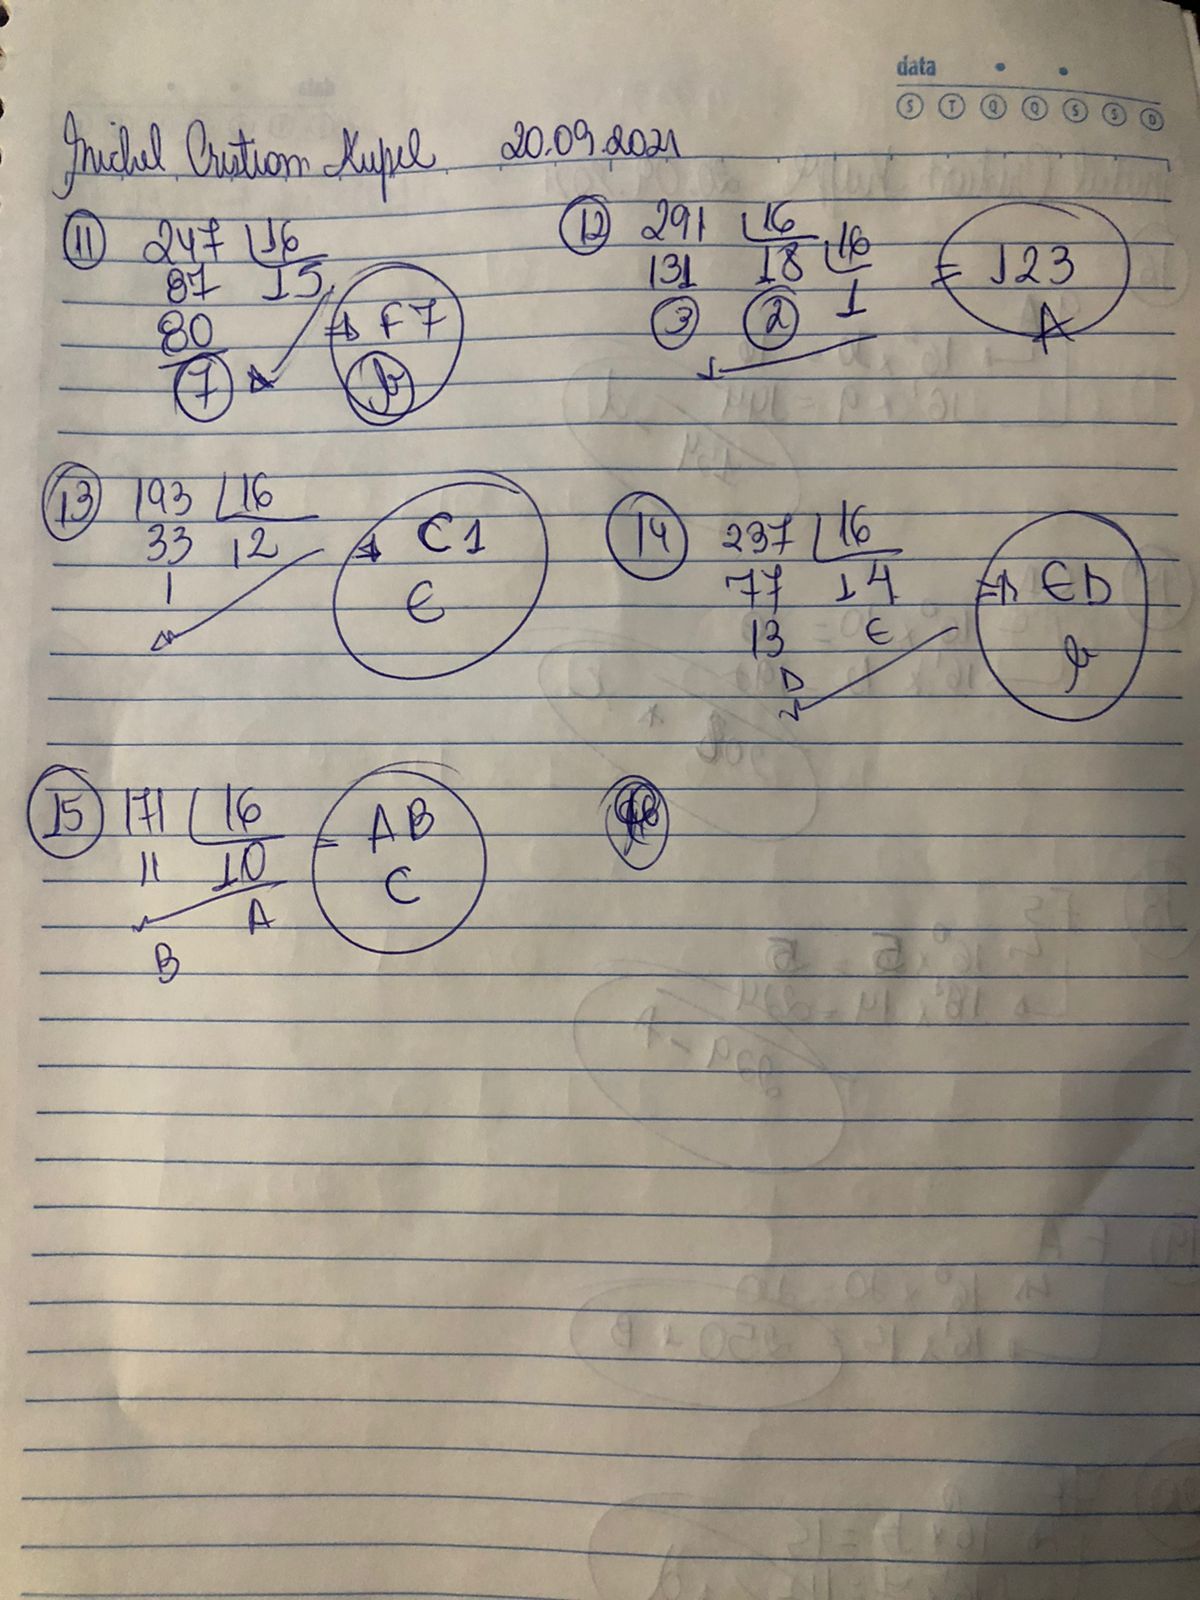 data
S T Q Q S S D
Michel Cristian Kupel 20.09.2021
11 247 16
87 15
80
7
F7
b
12 291 16
131 18 16
3 2 1
= 123
A
13 193 16
33 12
1
C1
E
14 237 16
77 14
13 E
D
ED
b
15 171 16
11 10
A
B
= AB
C